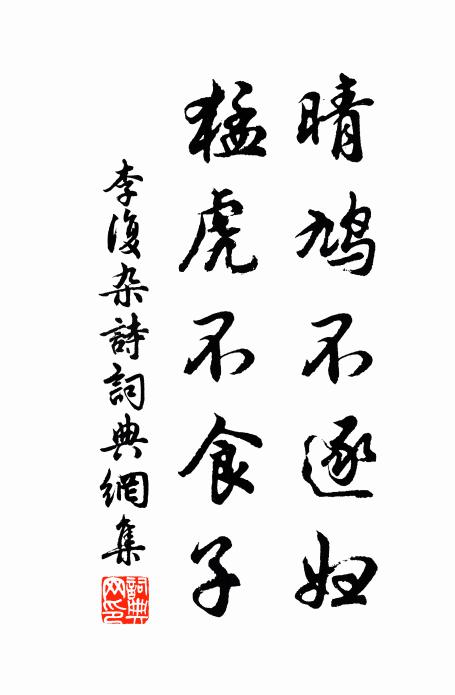 晴鳩不逐婦
猛虎不食子
李復杂詩詞典網集
詞典網印